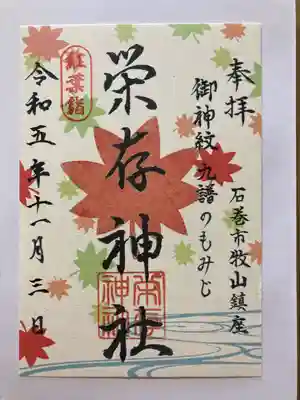 奉拝
石巻市牧山鎮座
御神紋 九譜のもみじ
栄存神社
栄存神社
紅葉詣
令和五年十一月三日